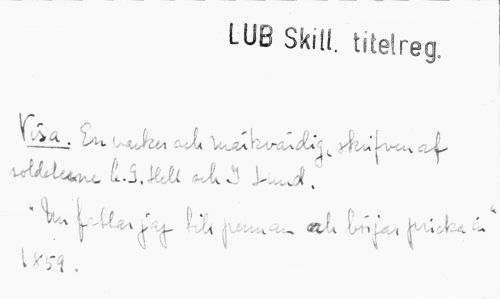 LUB Skill. titelreg.
Visa. En vacker och märkvärdig, skrifven af
soldaterne L. G. Hell och J Lund.
"Nu fattar jag till pennan och börjar pricka i"
1859.